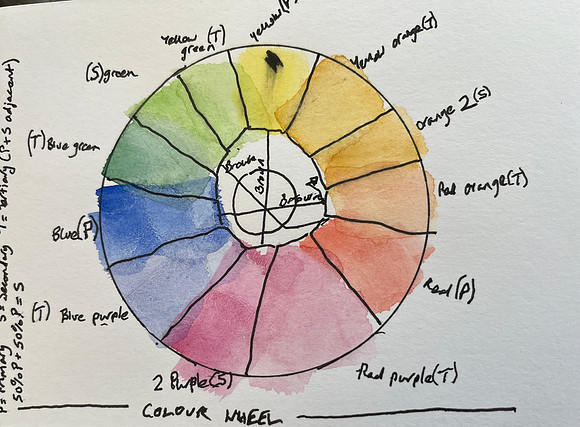 P = Primary S = Secondary T = Tertiary (P + S adjacent)
50% P + 50% P = S
Yellow (P)
Yellow orange (T)
orange 2 (S)
Red orange (T)
Red (P)
Red purple (T)
2 Purple (S)
(T) Blue purple
Blue (P)
(T) Blue green
(S) green
Yellow (T)
green
Brown
Brown
Brown
COLOUR WHEEL